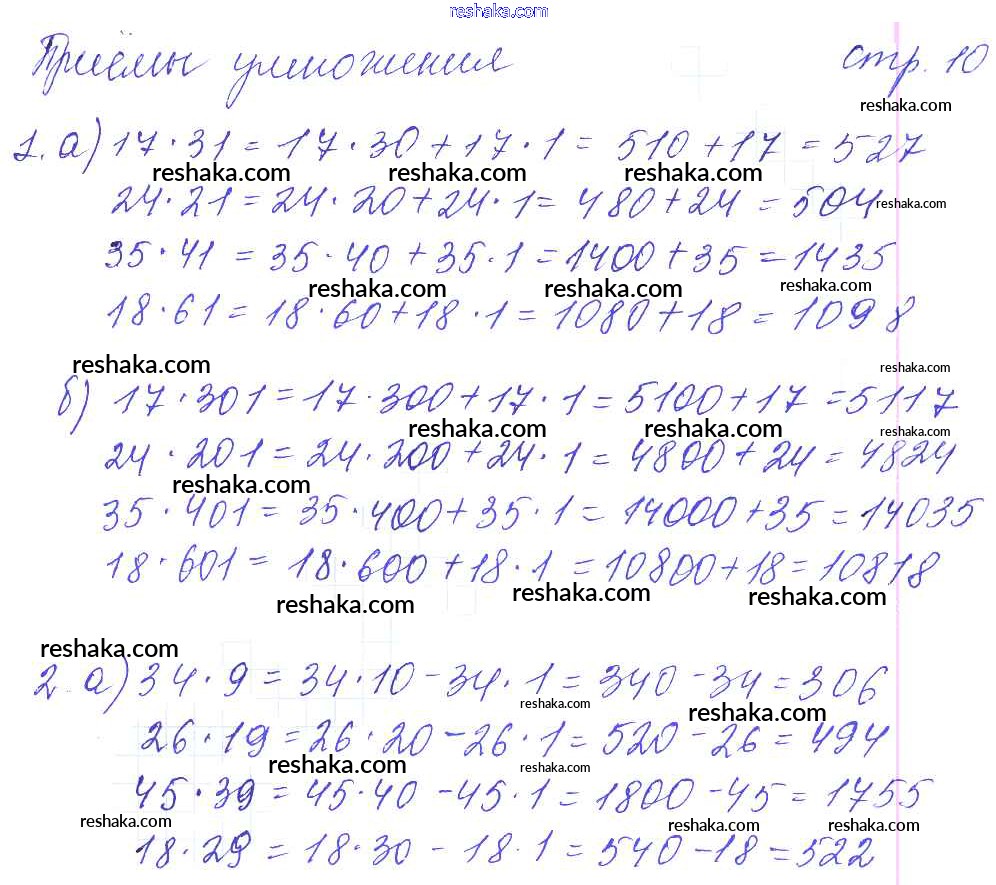 reshaka.com
Приёмы умножения стр. 10
reshaka.com
1. а) 17 · 31 = 17 · 30 + 17 · 1 = 510 + 17 = 527
reshaka.com reshaka.com reshaka.com
24 · 21 = 24 · 20 + 24 · 1 = 480 + 24 = 504 reshaka.com
35 · 41 = 35 · 40 + 35 · 1 = 1400 + 35 = 1435
reshaka.com reshaka.com reshaka.com
18 · 61 = 18 · 60 + 18 · 1 = 1080 + 18 = 1098
reshaka.com reshaka.com
б) 17 · 301 = 17 · 300 + 17 · 1 = 5100 + 17 = 5117
reshaka.com reshaka.com reshaka.com
24 · 201 = 24 · 200 + 24 · 1 = 4800 + 24 = 4824
reshaka.com
35 · 401 = 35 · 400 + 35 · 1 = 14000 + 35 = 14035
18 · 601 = 18 · 600 + 18 · 1 = 10800 + 18 = 10818
reshaka.com reshaka.com reshaka.com
reshaka.com
2. а) 34 · 9 = 34 · 10 - 34 · 1 = 340 - 34 = 306
reshaka.com reshaka.com
26 · 19 = 26 · 20 - 26 · 1 = 520 - 26 = 494
reshaka.com reshaka.com
45 · 39 = 45 · 40 - 45 · 1 = 1800 - 45 = 1755
reshaka.com reshaka.com reshaka.com
18 · 29 = 18 · 30 - 18 · 1 = 540 - 18 = 522